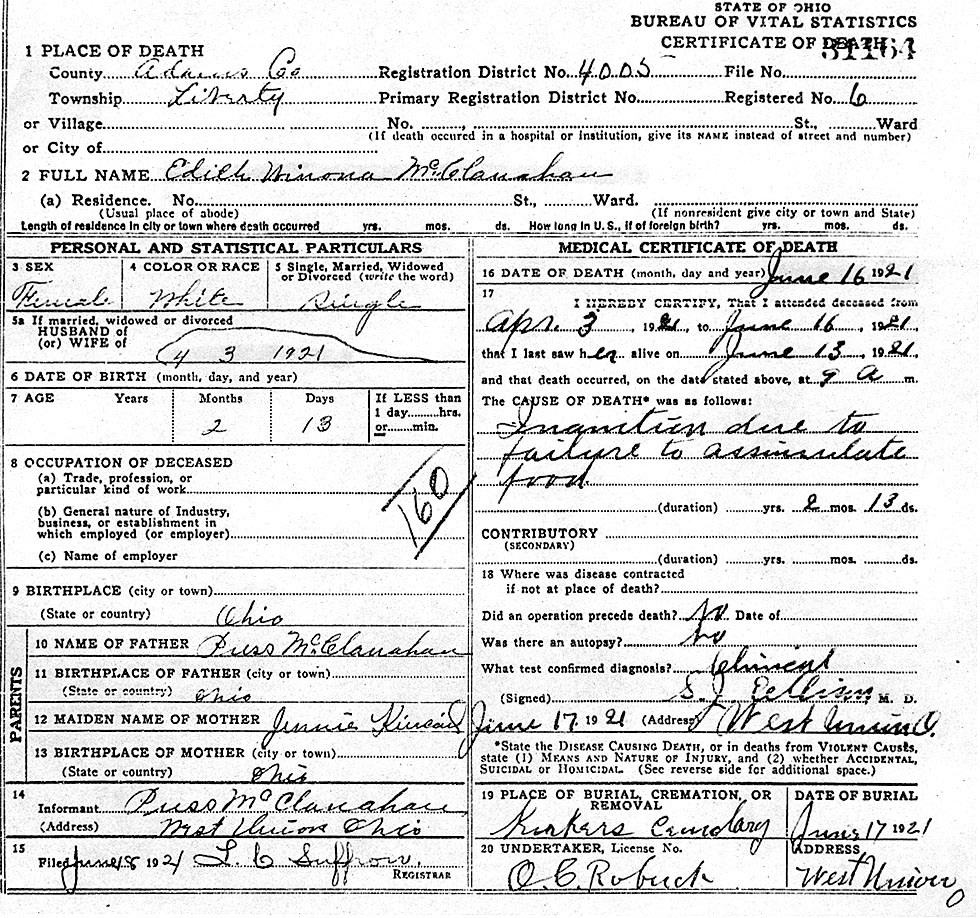 STATE OF OHIO
BUREAU OF VITAL STATISTICS
CERTIFICATE OF DEATH
31164
1 PLACE OF DEATH
County Adams Co Registration District No. 4005 File No.
Township Liberty Primary Registration District No. Registered No. 6
or Village No. , St., Ward
(If death occured in a hospital or institution, give its NAME instead of street and number)
or City of
2 FULL NAME Edith Winona McClanahan
(a) Residence. No. St., Ward.
(Usual place of abode) (If nonresident give city or town and State)
Length of residence in city or town where death occurred yrs. mos. ds. How long in U.S., if of foreign birth? yrs. mos. ds.
PERSONAL AND STATISTICAL PARTICULARS
3 SEX 4 COLOR OR RACE 5 Single, Married, Widowed
or Divorced (write the word)
Female White Single
5a If married, widowed or divorced
HUSBAND of
(or) WIFE of
4 3 1921
6 DATE OF BIRTH (month, day, and year)
7 AGE Years Months Days If LESS than
1 day........hrs.
or......min.
2 13
8 OCCUPATION OF DECEASED
(a) Trade, profession, or
particular kind of work
(b) General nature of Industry,
business, or establishment in
which employed (or employer)
(c) Name of employer
160
9 BIRTHPLACE (city or town)
(State or country) Ohio
PARENTS
10 NAME OF FATHER Russ McClanahan
11 BIRTHPLACE OF FATHER (city or town)
(State or country) Ohio
12 MAIDEN NAME OF MOTHER Jennie Kincaid
13 BIRTHPLACE OF MOTHER (city or town)
(State or country) Ohio
14
Informant Russ McClanahan
(Address) West Union Ohio
15
Filed June 18 1921 L. C
REGISTRAR
MEDICAL CERTIFICATE OF DEATH
16 DATE OF DEATH (month, day and year) June 16 1921
17
I HEREBY CERTIFY, That I attended deceased from
Apr. 3, 1921, to June 16, 1921
that I last saw her alive on June 13, 1921
and that death occurred, on the date stated above, at 9 a m.
The CAUSE OF DEATH* was as follows:
Inanition due to
failure to assimulate
food.
(duration) yrs. 2 mos. 13 ds.
CONTRIBUTORY
(SECONDARY)
(duration) yrs. mos. ds.
18 Where was disease contracted
if not at place of death?
Did an operation precede death? No Date of
Was there an autopsy? No
What test confirmed diagnosis? Clinical
(Signed) S. J. Ellison, M. D.
June 17 1921 (Address) West Union O.
*State the DISEASE CAUSING DEATH, or in deaths from VIOLENT CAUSES,
state (1) MEANS AND NATURE OF INJURY, and (2) whether ACCIDENTAL,
SUICIDAL or HOMICIDAL. (See reverse side for additional space.)
19 PLACE OF BURIAL, CREMATION, OR
REMOVAL
Kirkers Cemetary
DATE OF BURIAL
June 17 1921
20 UNDERTAKER, License No.
O. C. Robuck
ADDRESS
West Union
O